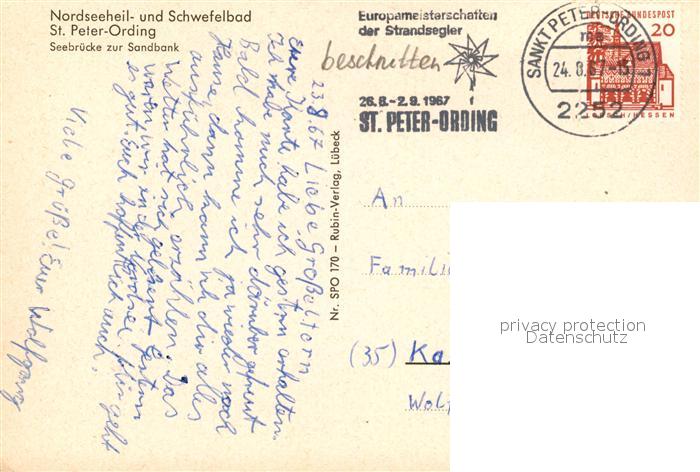 Nordseeheil- und Schwefelbad
St. Peter-Ording
Seebrücke zur Sandbank
Europameisterschaften
der Strandsegler
beschnitten
26.8.- 2.9.1967
ST. PETER-ORDING
SANKT PETER-ORDING 1
24.8.67
2252
DEUTSCHE BUNDESPOST
20
LORSCH/HESSEN
23.8.67 Liebe Großeltern
Eure Karte habe ich gestern erhalten.
Ich habe mich sehr darüber gefreut
Bald komme ich ja wieder nach
Hause dann kann ich dir alles
ausführlich erzählen. Das
Wetter hat sich gebessert. Gestern
waren wir in der Nordsee. Mir geht
es gut. Euch hoffentlich auch.
Viele Grüße! Euer Wolfgang
Nr. SPO 170 – Rubin-Verlag, Lübeck
An
Famili
(35) Ka
Wol
privacy protection
Datenschutz